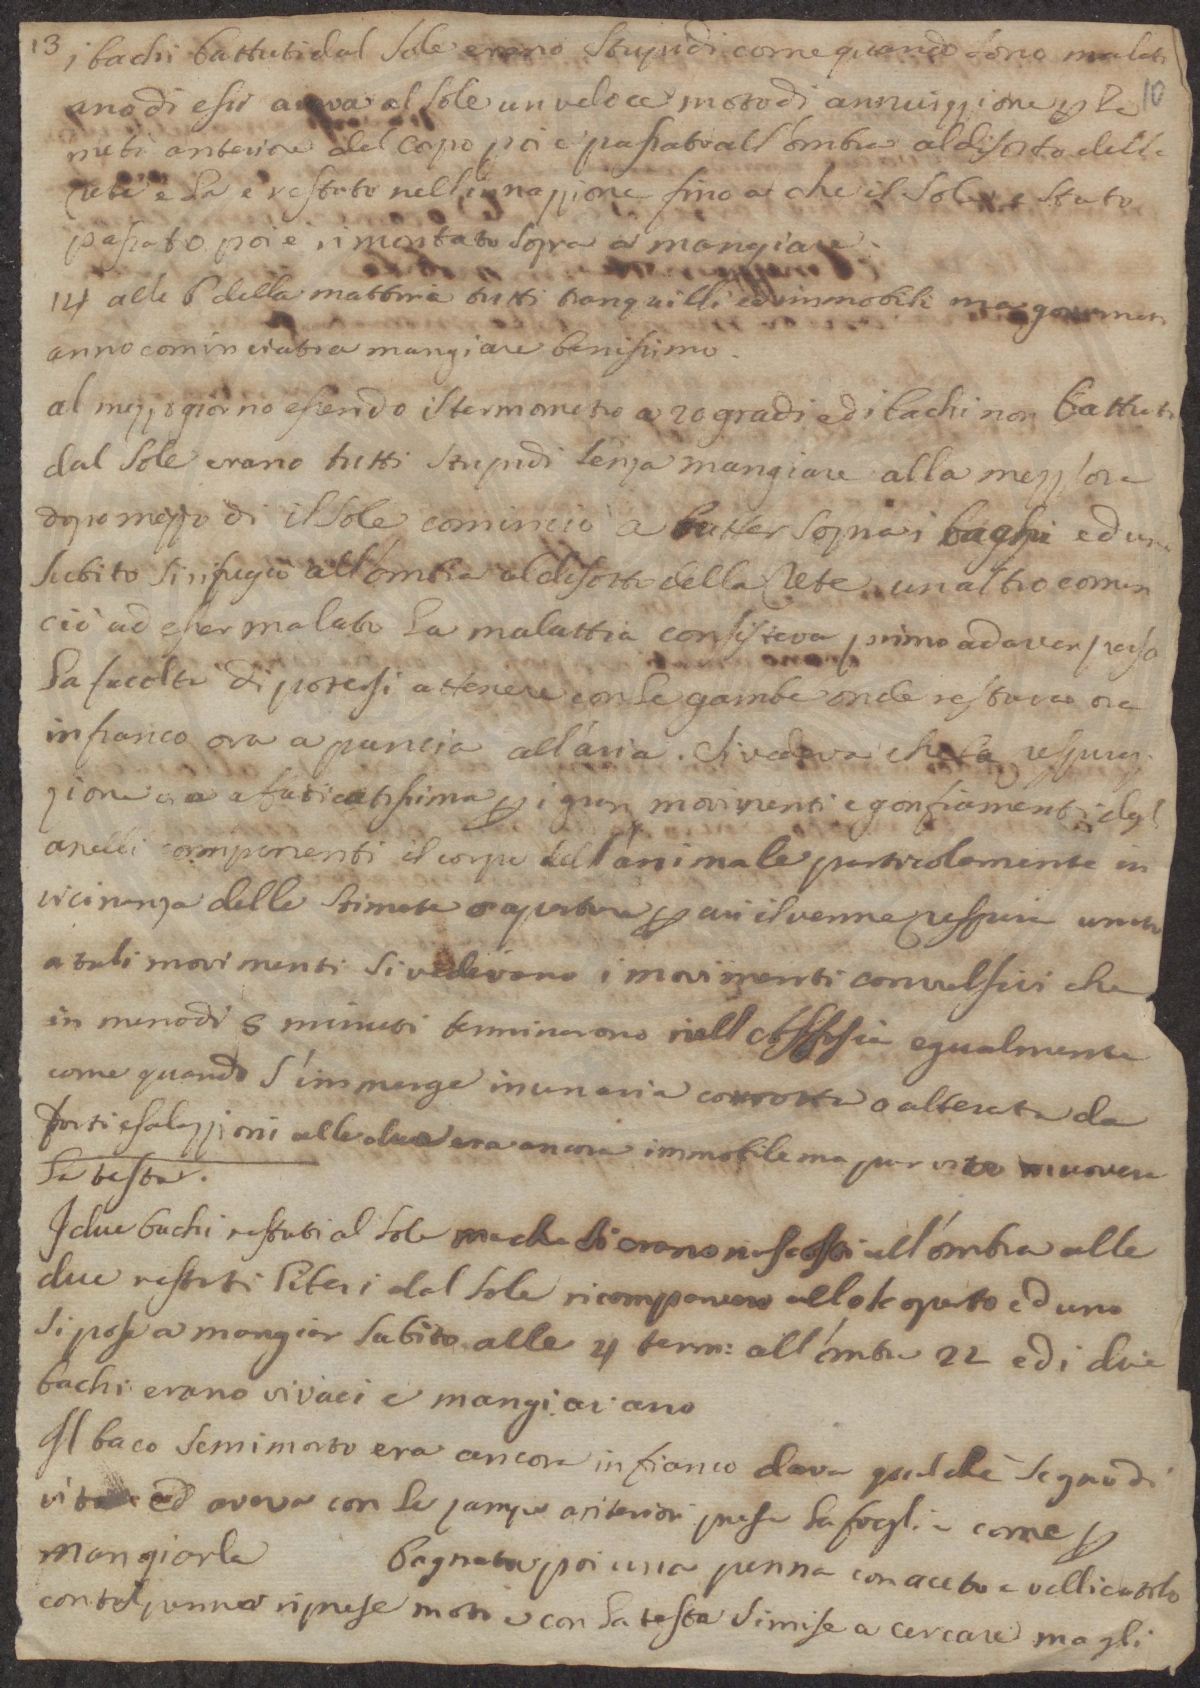 13 i bachi battuti dal Sole erano Stupidi come quando sono malati
10
uno di essi aveva al Sole un veloce moto di annuizzione p la
metà anteriore del Capo poi è passato all'ombra al disotto della
rete e la è restato nell'innazzione fino a che il Sole è stato
passato poi è rimontato sopra a mangiare.
14 alle 6 della mattina tutti tranquilli ed immobili ma governati
anno cominciato a mangiare benissimo.
al mezzo giorno essendo il termometro a 20 gradi ed i bachi non battuti
dal Sole erano tutti Stupidi senza mangiare alla mezz'ora
dopo mezzo di il Sole cominciò a batter sopra i bachi ed uno
Subito si rifugiò all'ombra al disotto della Rete un altro comin
ciò ad esser malato La malattia consisteva primo ad aver perso
La facoltà di potersi attenere con le gambe onde restava ora
in fianco ora a pancia all'aria. Si vedeva che la respira
zione era afaticatissima p i gran movimenti e gonfiamenti degl
anelli componenti il corpo dell'animale particolarmente in
vicinanza delle Stimate o aperture p cui il verme respira unito
a tali movimenti si vedevano i movimenti convulsivi che
in meno di 8 minuti terminarono nell'Asfissia egualmente
come quando S'immerge in un aria corrotta o alterata da
forti esalazzioni alle due era ancora immobile ma pur vivo moveva
la testa.
I due bachi restati al Sole ma che si erano nascosti all'ombra alle
due restati liberi dal Sole ricomparvero allo scoperto ed uno
si pose a mangiar Subito alle 4 term: all'ombra 22 ed i due
bachi erano vivaci e mangiavano
Il baco Semimorto era ancora in fianco dava qualche segno di
vita ed aveva con le zampe anteriori presa la foglia come p
mangiarla Bagnata poi una penna con aceto e vellicatolo
con tal penna riprese moto e con la testa si mise a cercare ma gli